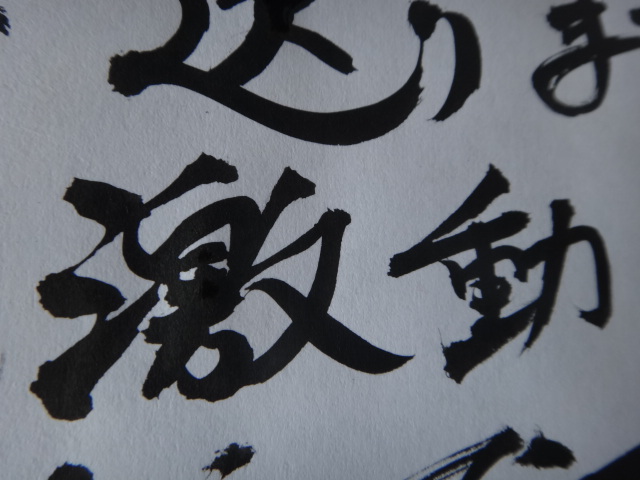 送りま
激動